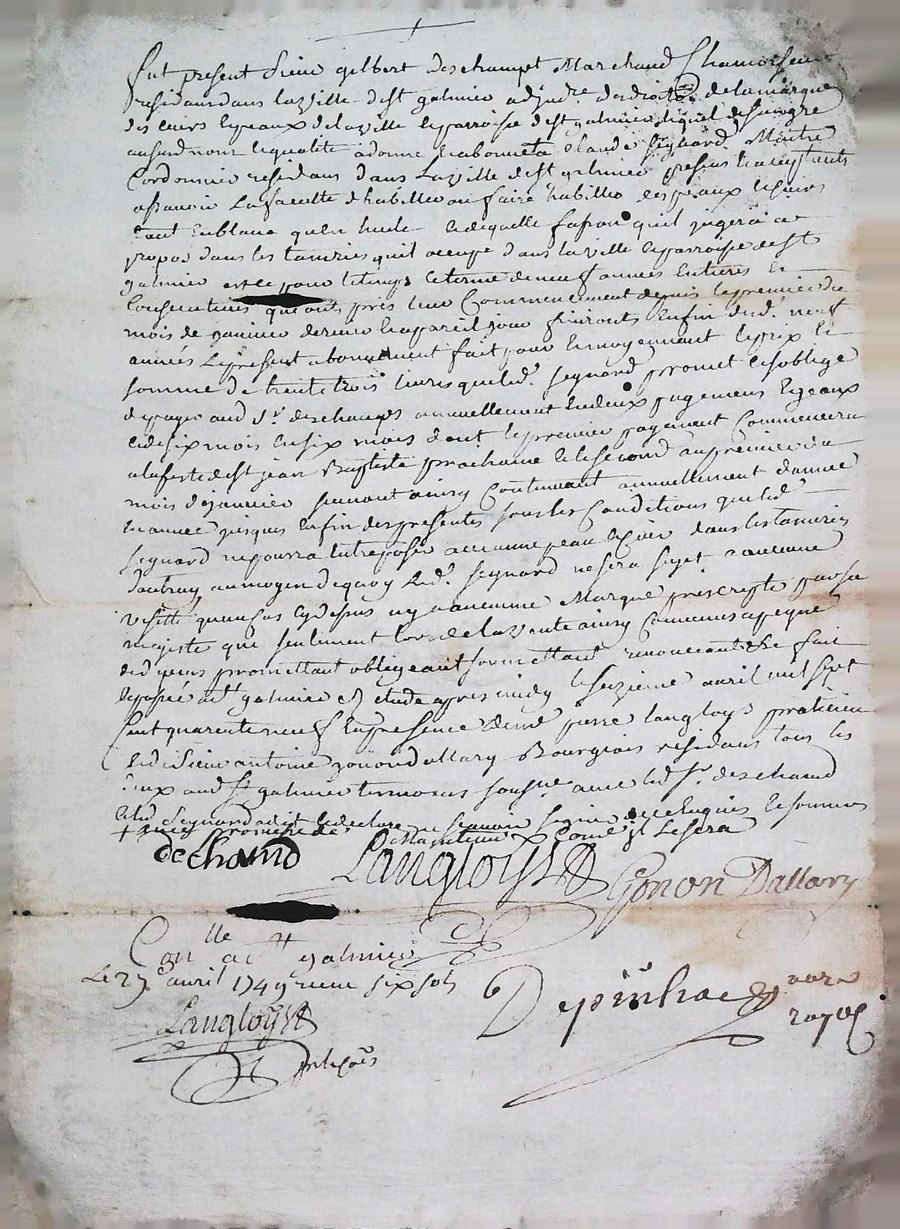 fut present Sieur gilbert deschampt Marchand Chamoiseur
residans dans la ville de st galmier adjud.re des droits de la marque
des cuirs et peaux de la ville et parroisse de st galmier lequel de son gre
aud nom et qualité a donné en abonnet a Claude Seignard Maitre
Cordonnier residans dans la ville de st galmier presens et acceptants
assavoir la faculte d'habiller ou faire habiller des peaux et cuirs
tant en blanc qu'en huile et de quelle fason quil jugera a
propos dans les tanneries quil occupe dans la ville et parroisse de st
galmier et ce pour le temps et terme de neuf années entieres et
Consecutives qui ont pris leur Commencement depuis le premier du
mois de janvier dernier et a pareil jour finiront En fin desd. neuf
années Le present abonnement fait pour Et moyennant le prix et
somme de trente trois livres que led. Seignard promet et soblige
de payer aud Sr. deschamps annuellement en deux payemens Egeaux
et de six mois en six mois dont le premier payement Commencera
a la feste de st jean Baptiste prochaine et le second au premier du
mois de janvier suivant ainsy Continuant annuellement d'année
en année jusques En fin des presentes sous les Conditions que led.
Seignard ne pourra Entreposer aucunne peau et cuir dans les tanneries
d'autruy, au moyen de quoy Led. Seignard ne sera sujet a aucune
visitte quen cas cy dessus ny a aucunne Marque prescripte par sa
majesté que seulement lors de la vente ainsy Convenus a peyne
promettant obligeant soumettant renonceant &c fait
et passé a st galmier et etude apres midy le seizieme avril mil sept
Cent quarente neuf En presence de me pierre Langloys praticien
et de Sieur antoine gonon dallary Bourgeois residans tous les
deux aud St galmier temoins sousne avec led Sr. deschand
et led Seignard a dit et declare ne scavoir signer de ce enquis et sommes
deChand
Langloys
Gonon Dallary
Con.lle a st galmier
Le 27 avril 1749 receu six sols
Langloys
Depinhac
nore
royal